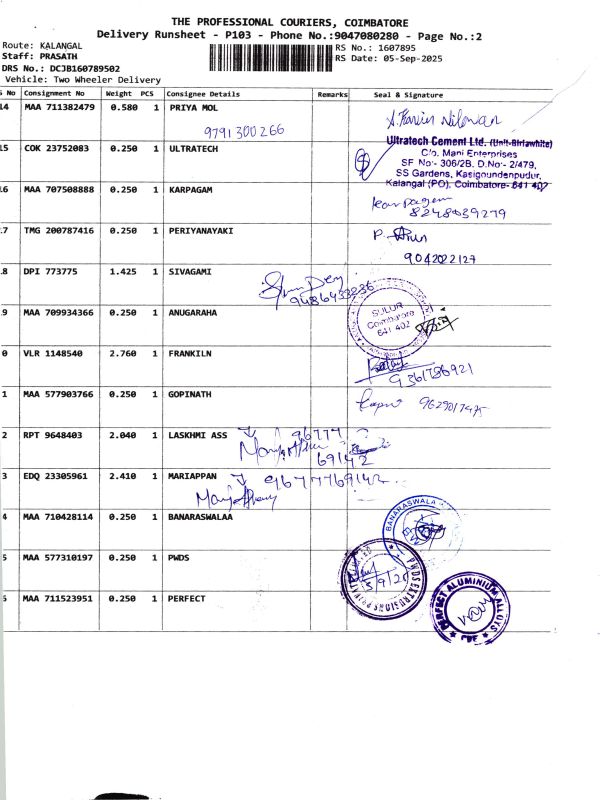 THE PROFESSIONAL COURIERS, COIMBATORE
Delivery Runsheet - P103 - Phone No.:9047080280 - Page No.:2
Route: KALANGAL
RS No.: 1607895
Staff: PRASATH
RS Date: 05-Sep-2025
DRS No.: DCJB160789502
Vehicle: Two Wheeler Delivery
S No Consignment No Weight PCS Consignee Details Remarks Seal & Signature
14 MAA 711382479 0.580 1 PRIYA MOL
9791300266
15 COK 23752083 0.250 1 ULTRATECH
Ultratech Cement Ltd. (Unit-Birlawhite)
C/o. Mani Enterprises
SF No:- 306/2B, D.No:- 2/479,
SS Gardens, Kasigoundenpudur,
Kalangal (PO), Coimbatore- 641 402
16 MAA 707508888 0.250 1 KARPAGAM
Karpagam
8248039279
17 TMG 200787416 0.250 1 PERIYANAYAKI
9042022127
18 DPI 773775 1.425 1 SIVAGAMI
9486433236
19 MAA 709934366 0.250 1 ANUGARAHA
SULUR
Coimbatore
641 402
0 VLR 1148540 2.760 1 FRANKILN
9361756921
1 MAA 577903766 0.250 1 GOPINATH
2 RPT 9648403 2.040 1 LASKHMI ASS
96777
69142
3 EDQ 23305961 2.410 1 MARIAPPAN
9677769142
4 MAA 710428114 0.250 1 BANARASWALAA
BANARASWALA
5 MAA 577310197 0.250 1 PWDS
PWDS EXTRUSIONS PRIVATE LIMITED
5/9/20
6 MAA 711523951 0.250 1 PERFECT
PERFECT ALUMINIUM ALLOYS
CBE